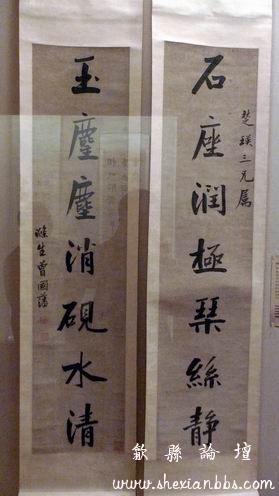 楚瑛三兄属
石座潤極琴絲静
玉麈塵消硯水清
滌生曾國藩
歙縣論壇
www.shexianbbs.com